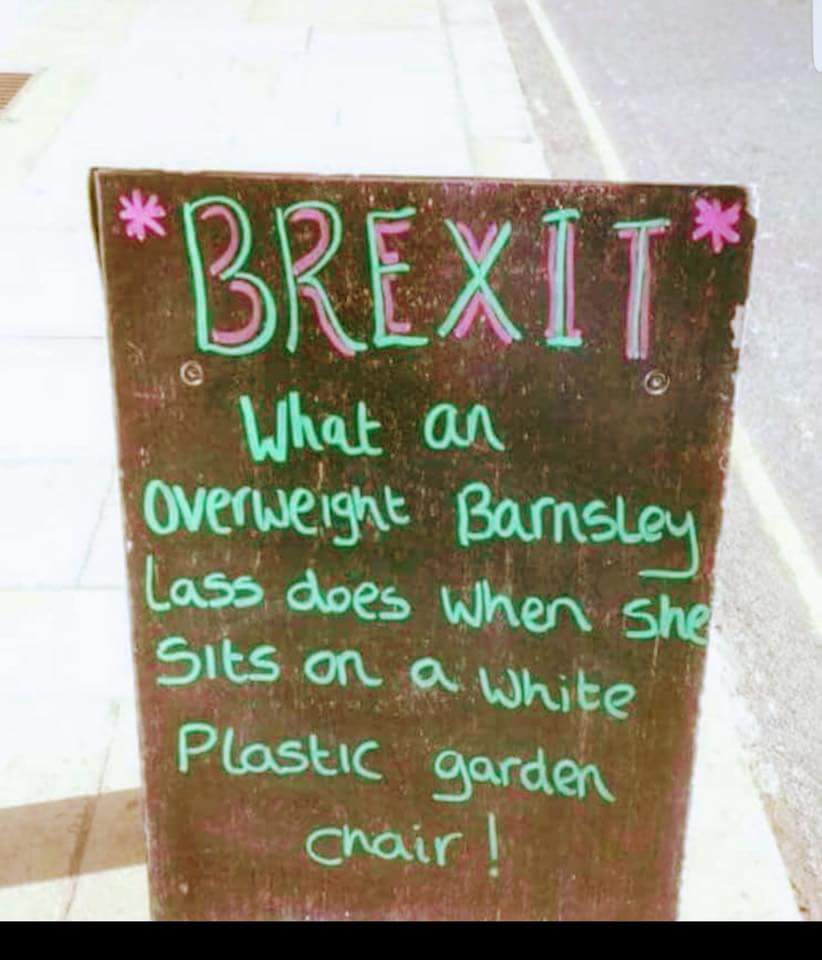 * BREXIT *
What an
Overweight Barnsley
Lass does when she
Sits on a white
Plastic garden
chair!